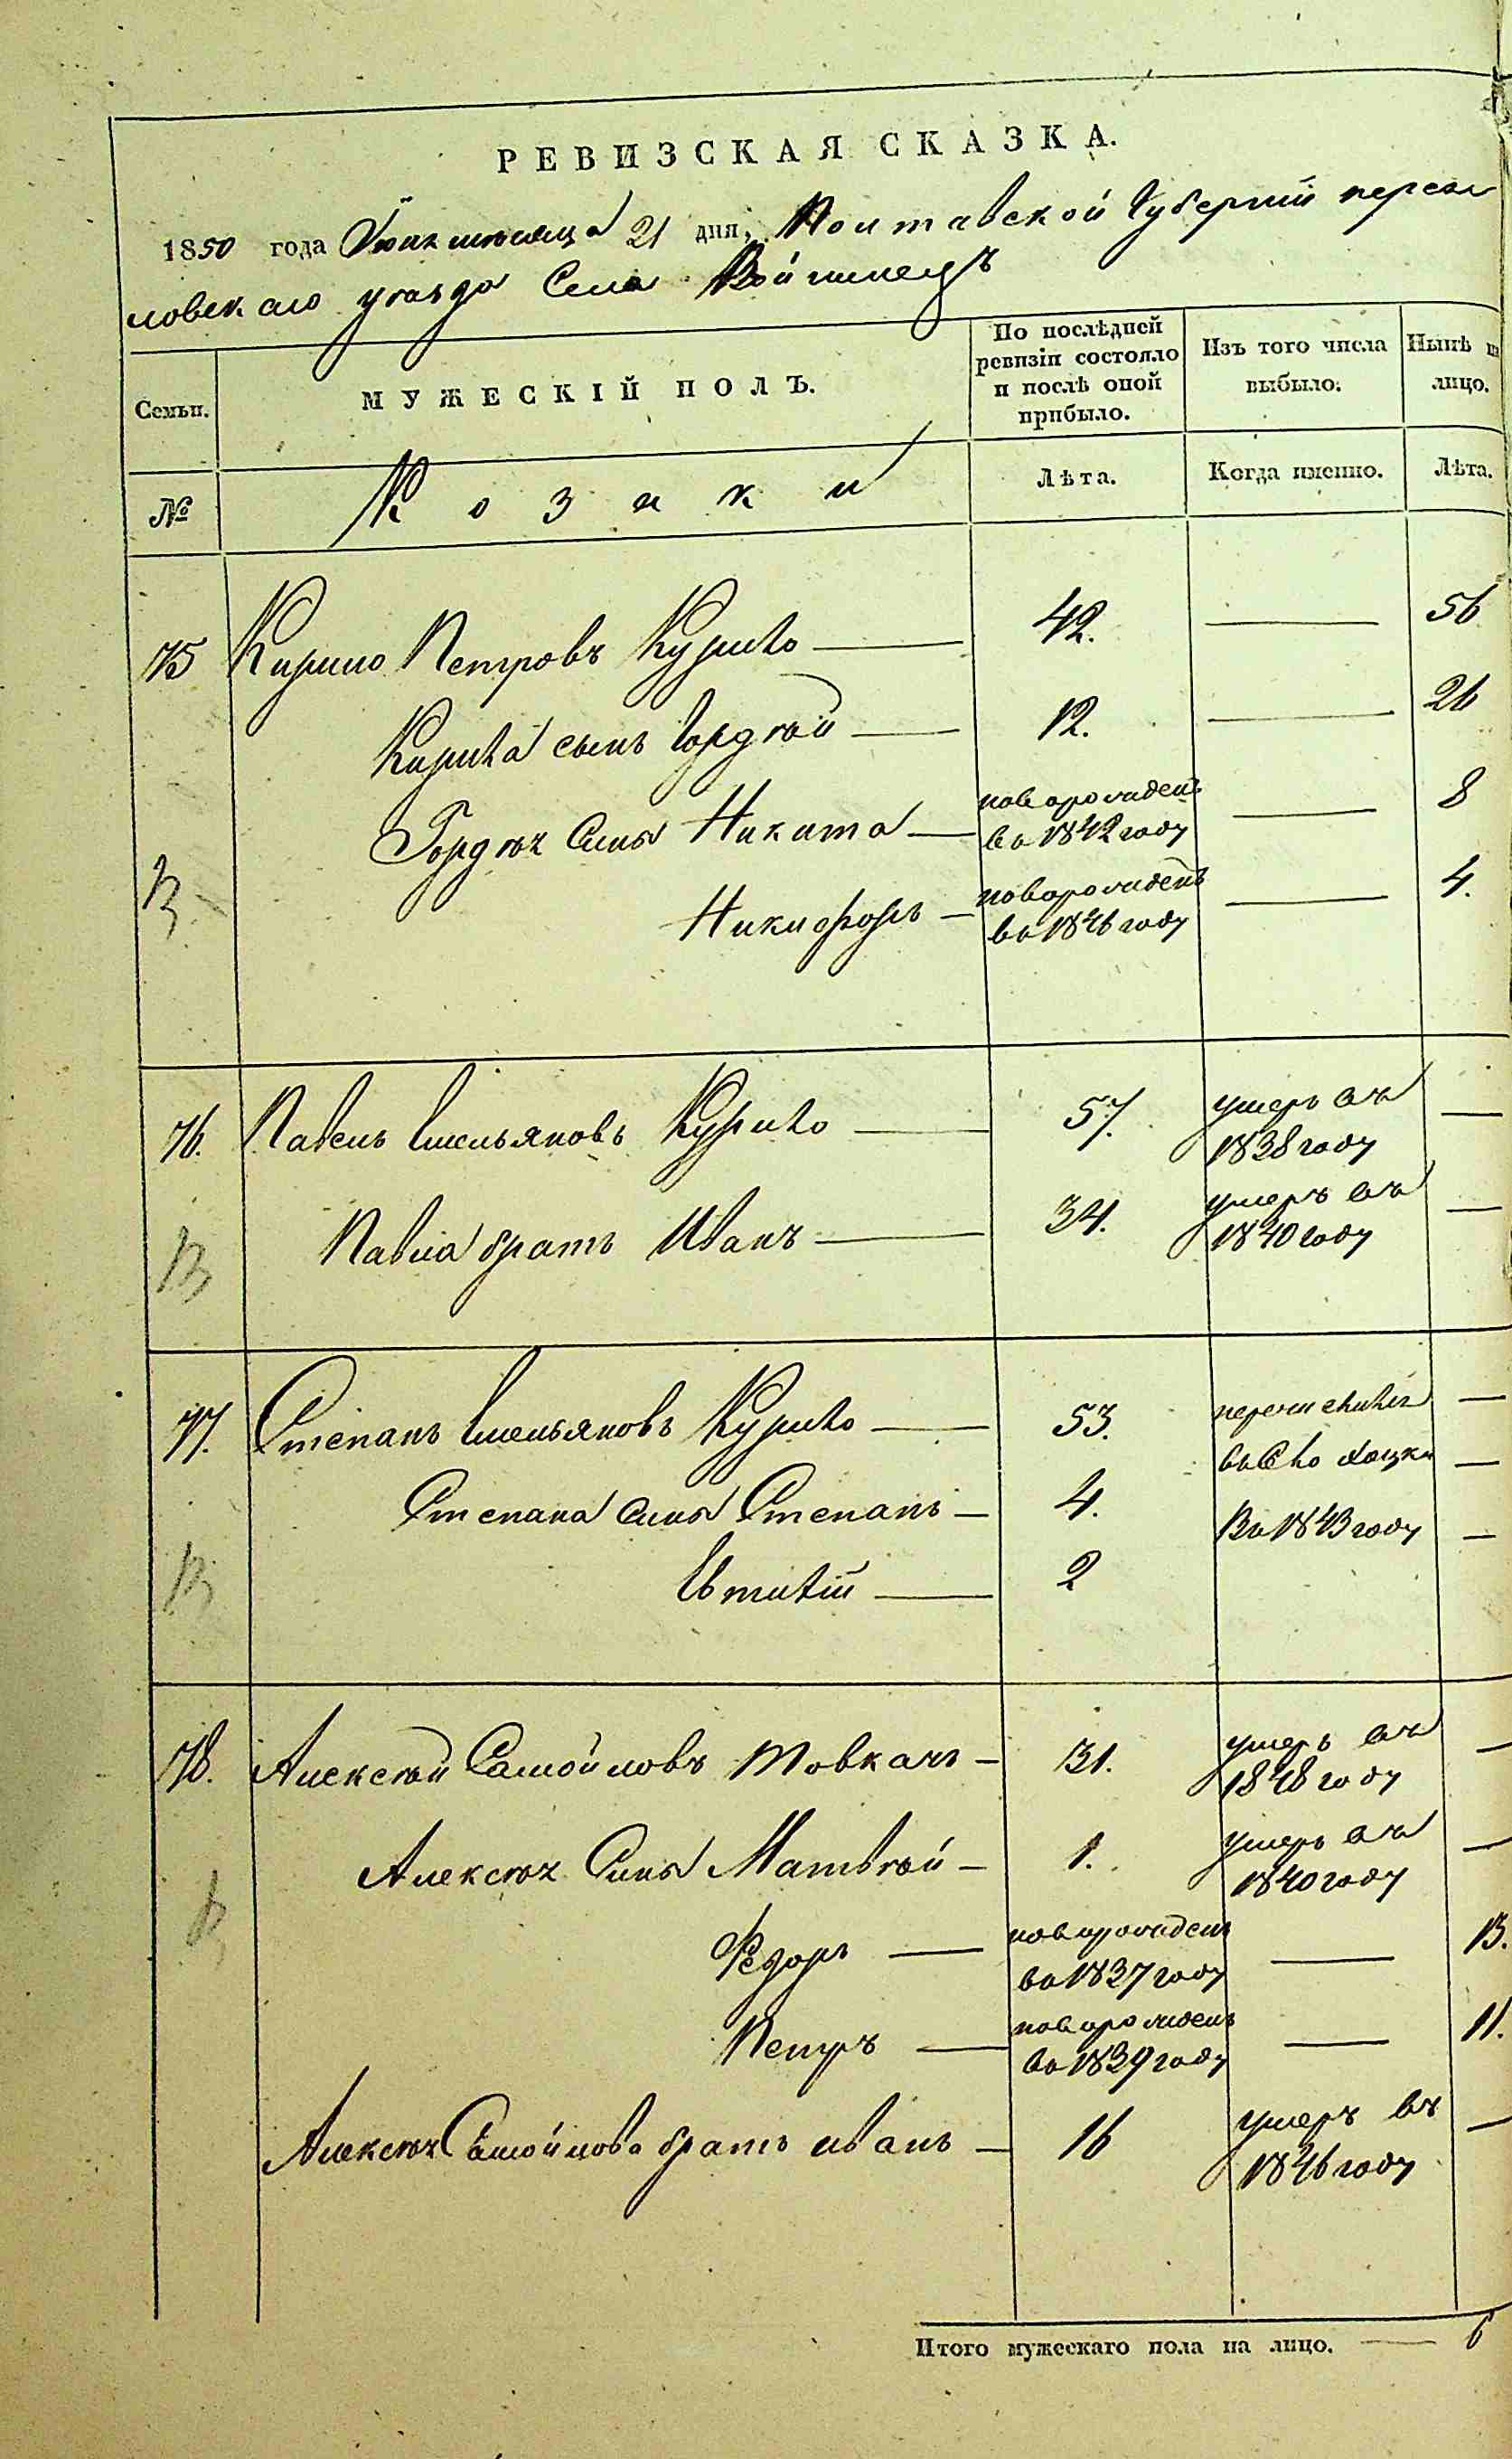 РЕВИЗСКАЯ СКАЗКА.
1850 года Іюня мѣсяца 21 дня, Полтавской Губерніи переяс
ловскаго уѣзда Села Войтовецъ
Семьи.
МУЖЕСКІЙ ПОЛЪ.
По послѣдней ревизіи состояло и послѣ оной прибыло.
Изъ того числа выбыло.
Нынѣ на лицо.
№
Козаки
Лѣта.
Когда именно.
Лѣта.
75 Кирило Петровъ Курило 42. 56
Кирила сынъ Гордѣй 12. 26
Гордѣя Сынъ Никита новорожденъ въ 1842 году 8
Никифоръ новорожденъ въ 1846 году 4.
76. Павелъ Емельяновъ Курило 57. умеръ въ 1838 году
Павла братъ Иванъ 34. умеръ въ 1840 году
77. Степанъ Емельяновъ Курило 53. перечислился
Степана Сынъ Степанъ 4. Въ 1843 году
Евтихій 2
78. Алексѣй Самойловъ Товкачъ 31. умеръ въ 1848 году
Алексѣя Сынъ Матвѣй 1. умеръ въ 1840 году
Федоръ новорожденъ въ 1837 году 13.
Петръ новорожденъ въ 1839 году 11.
Алексѣя Самойлова братъ иванъ 16 умеръ въ 1846 году
Итого мужескаго пола на лицо. 6